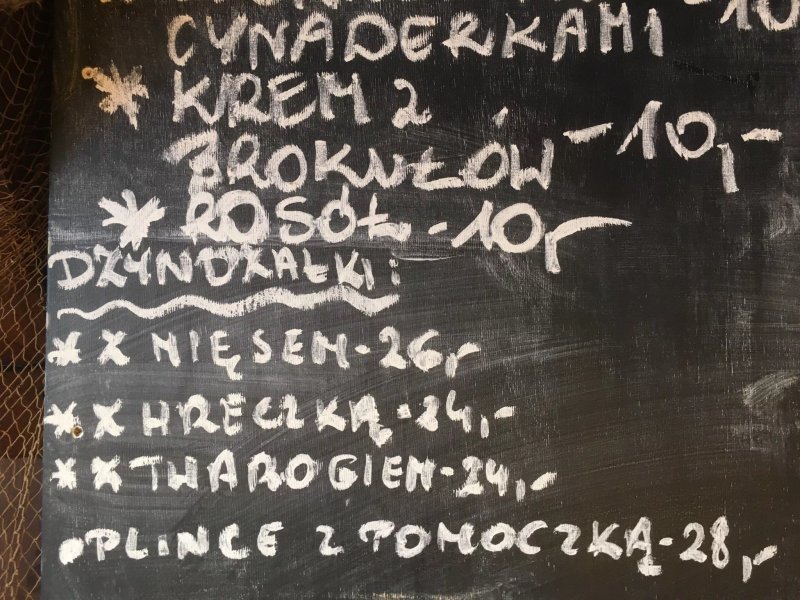 -10
CYNADERKAMI
* KREM Z
BROKUŁÓW -10,-
* ROSÓŁ - 10,-
DZYNDZAŁKI:
* X MIĘSEM - 26,-
* X HRECZKĄ - 24,-
* X TWAROGIEM - 24,-
• PLINCE Z POMOCZKĄ - 28,-